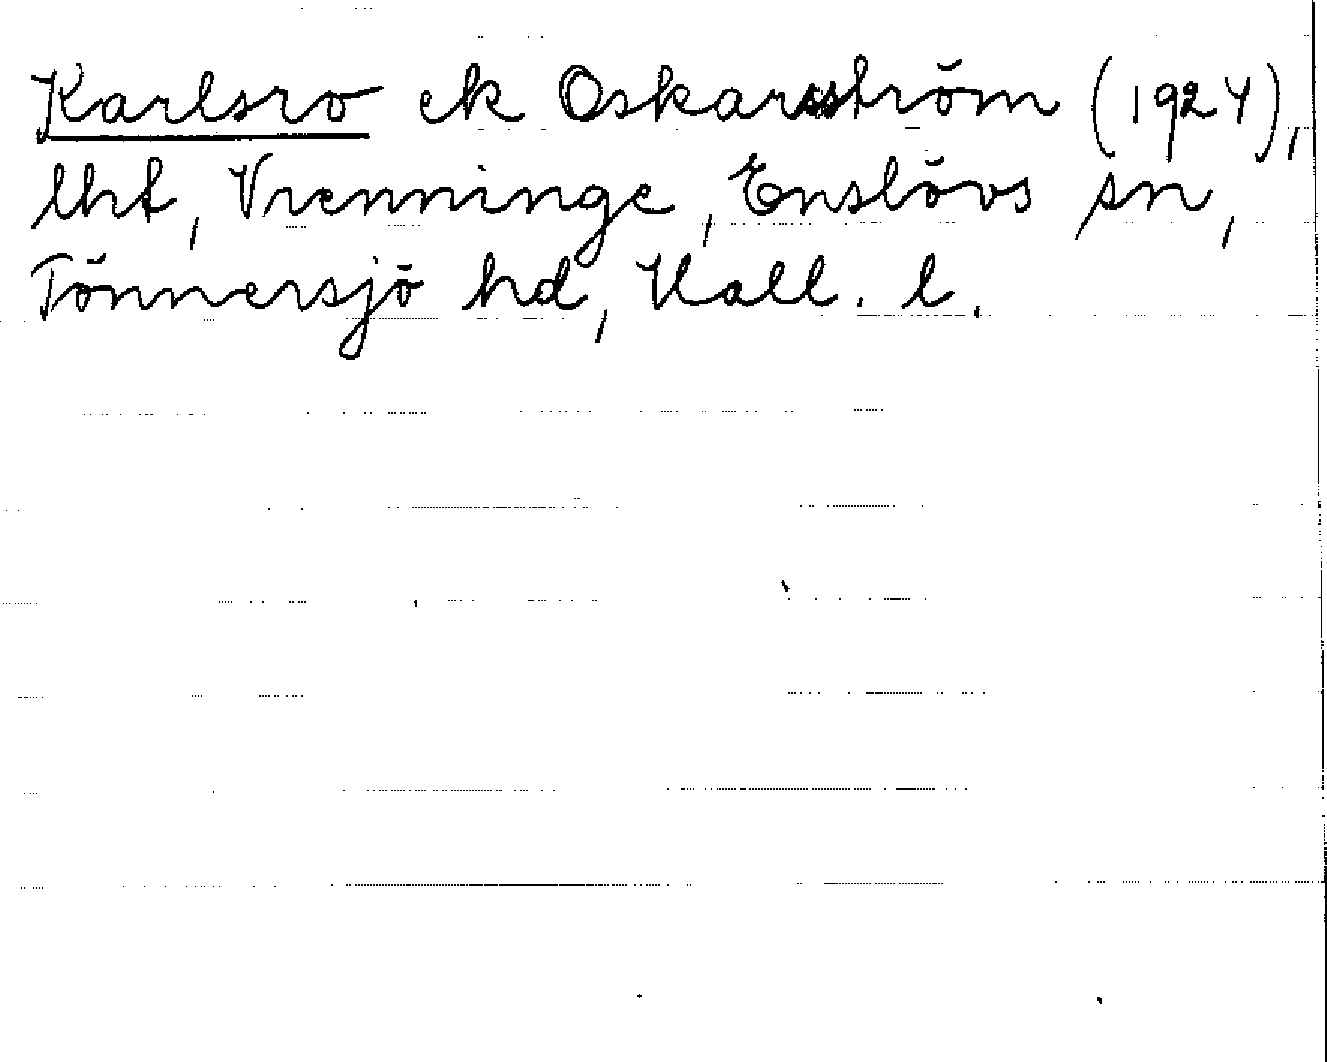 Karlsro ek Oskarsström (1924),
lht, Vrenninge, Enslövs sn,
Tönnersjö hd, Hall. l.